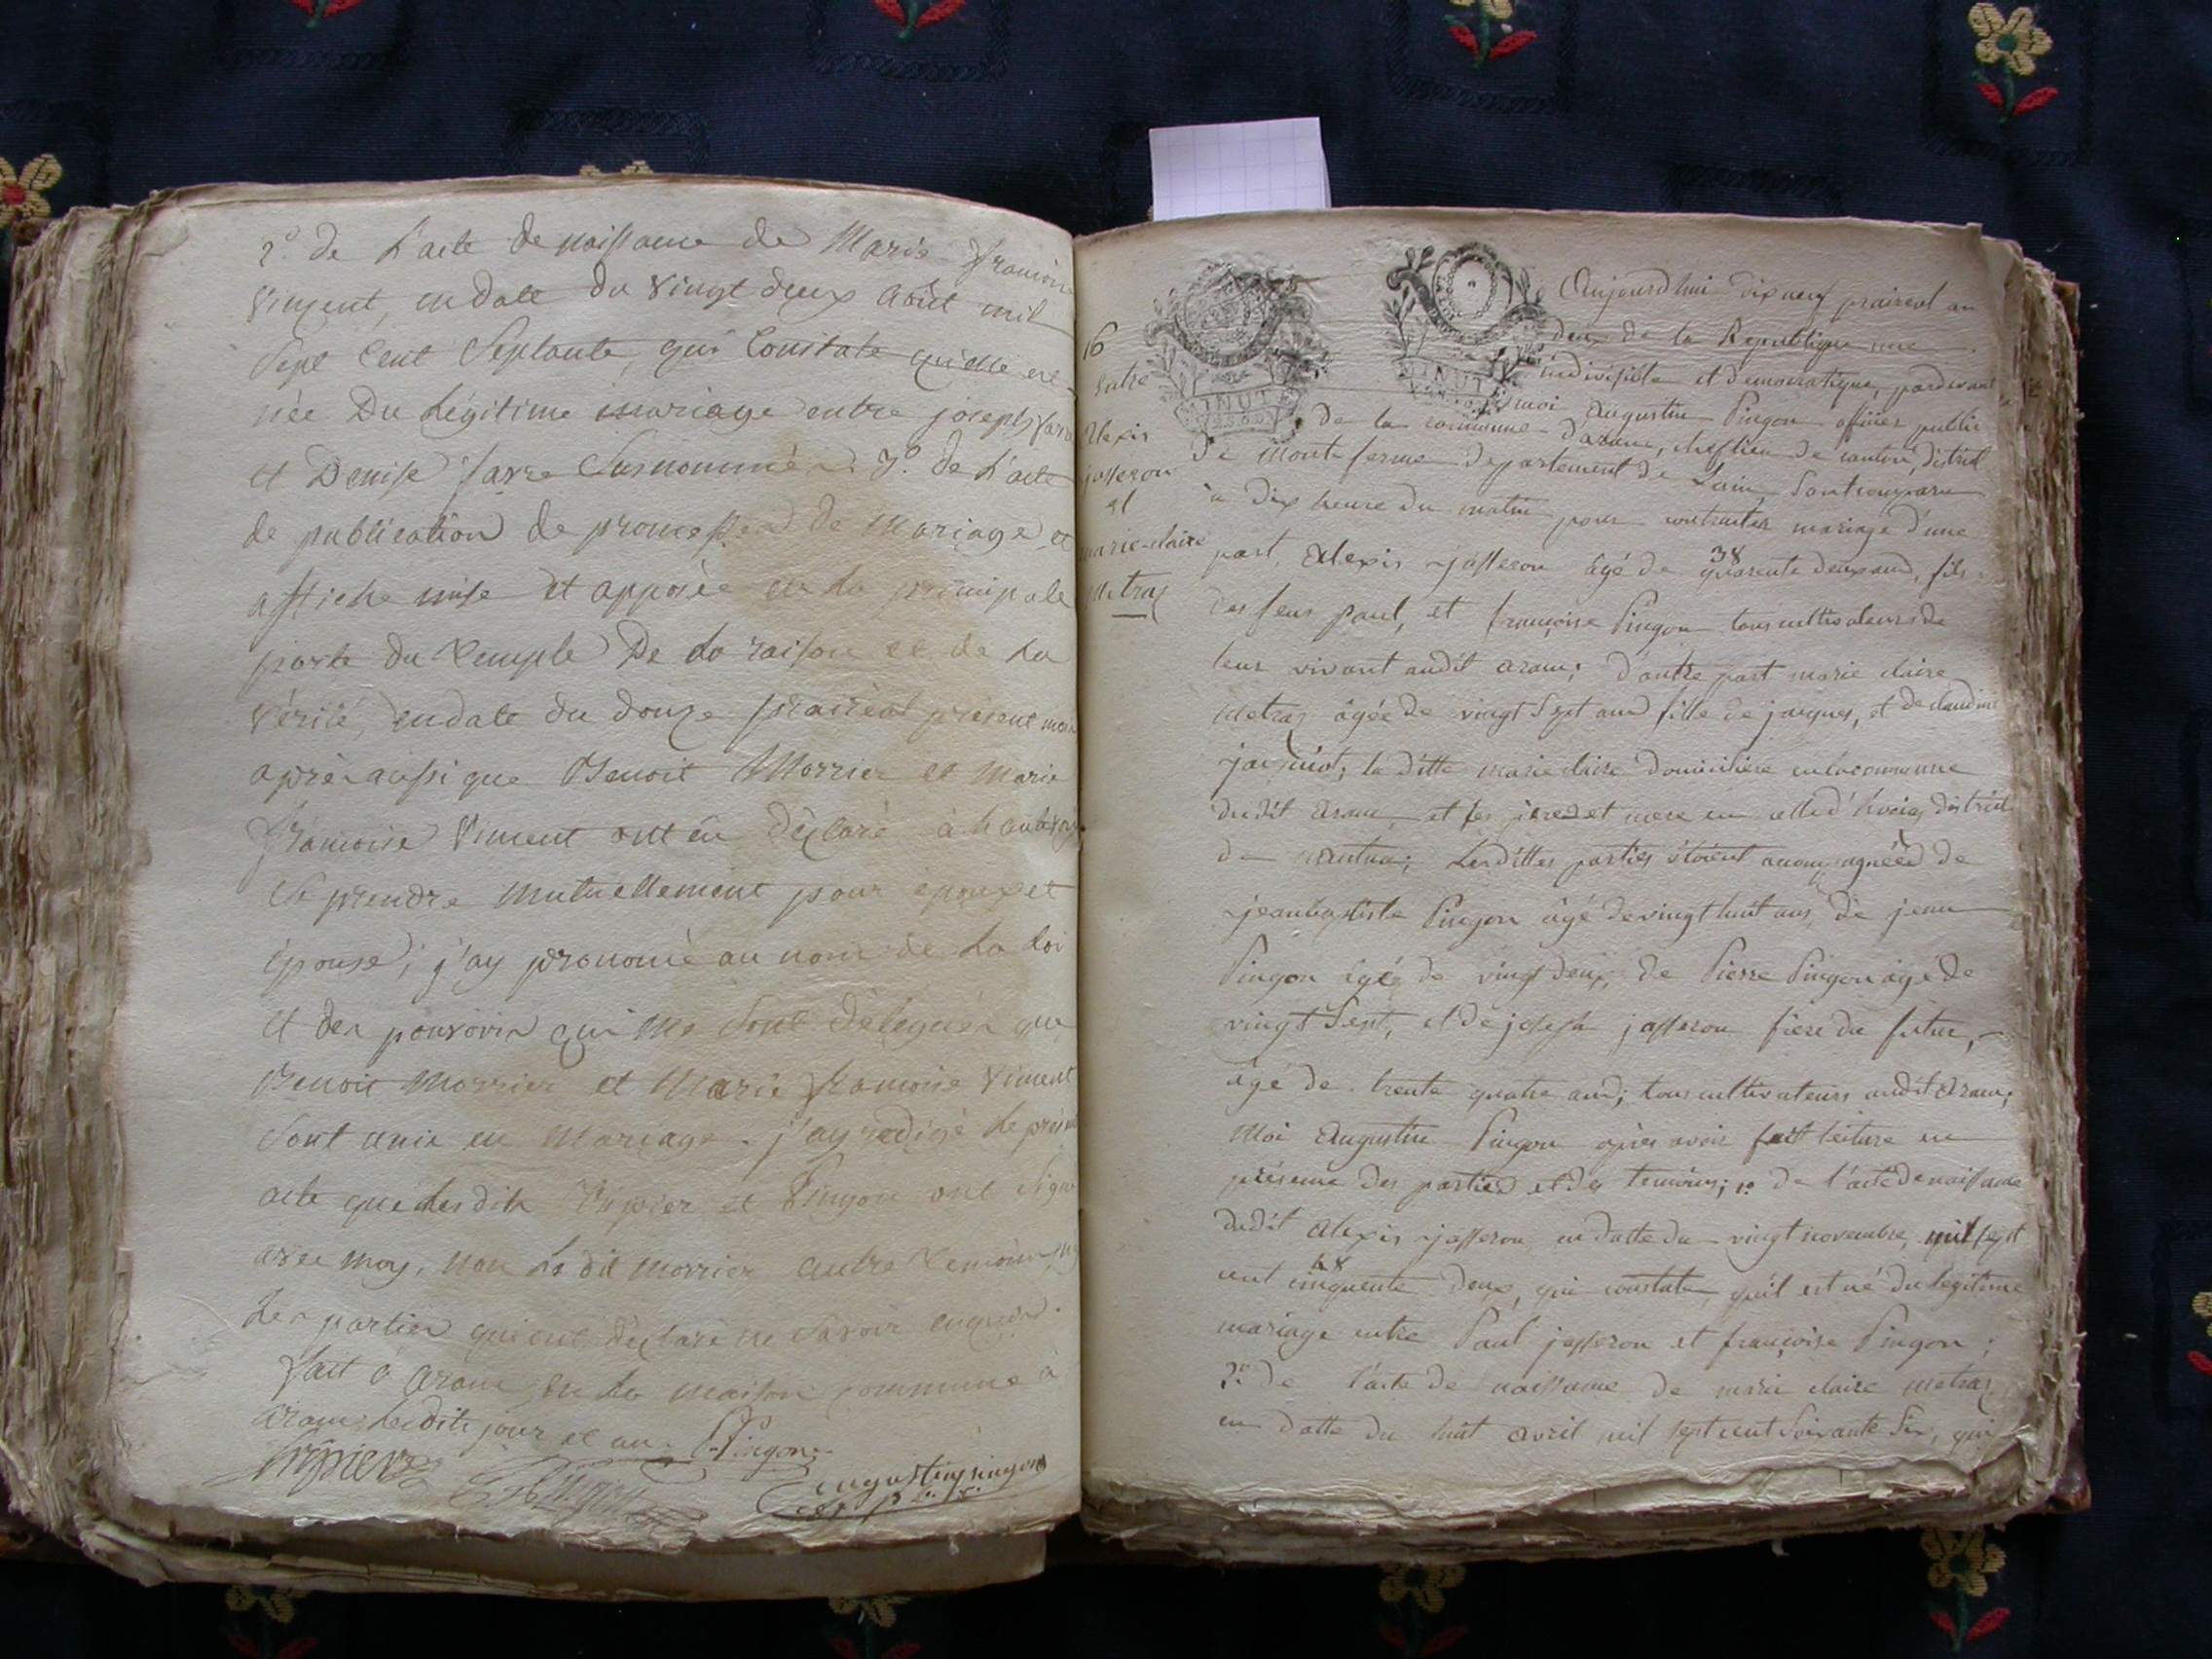 2.° de L'acte de naissance de Marie françoise
Vinçent, en date du Vingt deux Août mil
Sept Cent Septante, qui Constate qu'elle est
née Du Légitime mariage entre joseph
et Denise favre Susnommés 3.° de L'acte
de publication de promesses de Mariage et
affiche mise et apposée en la principale
porte du Temple De la raison et de La
Vérité, en date du douze prairéal présent mois
après aussi que Benoit Morrier et Marie
françoise Vincent ont eu Déclaré à haute voix
Se prendre Mutuellement pour époux et
épouse; j'ay prononcé au nom de La Loi
et des pouvoirs qui me Sont délegués que
Benoit Morrier et Marie françoise Vincent
Sont unis en Mariage. j'ay redigé le présent
acte que Lesdits et Pingon ont Signé
avec moy, non Le dit Morrier autre Temoin, ny
Les parties qui ont déclaré ne Savoir enquis.
fait à Aranc en La maison commune à
Aranc Lesdits jour et an. Pingon
augustin pingon
16
Entre
Alexis
jasseron
et
marie claire
Metraz
MINUTE
MINUTE
Aujourd'hui dix neuf prairéal an
deux de la Republique une
indivisible et democratique, pardevant
moi Augustin Pingon officier public
de la commune d'aranc, cheflieu de canton, district
de Montferme departement de Lain, Sont comparu
à dix heure du matin pour contracter mariage d'une
part, Alexis jasseron âgé de quarente deux ans, fils
38
des feus paul, et françoise Pingon tous cultivateurs de
leur vivant audit aranc; d'autre part marie claire
Metraz âgée de vingt Sept ans fille de jacques, et de claudine
la ditte marie claire Domiciliée en la commune
dudit aranc, et ses pere et mere en celle d' district
de nantua; Lesdittes parties étoient accompagnées de
jean baptiste Pingon âgé de vingt huit ans, de jean
Pingon âgé de vingt deux, de Pierre Pingon âgé de
vingt Sept, et de joseph jasseron frere du futur,
âgé de trente quatre ans; tous cultivateurs audit Aranc;
Moi Augustin Pingon après avoir fait lecture en
présence des parties et des temoins; 1.° de l'acte de naissance
dudit Alexis jasseron, en datte du vingt novembre, mil sept
cent cinquente deux, qui constate qu'il est né du legitime
mariage entre Paul jasseron et françoise Pingon;
2.° de l'acte de naissance de marie claire metraz
en datte du huit avril mil sept cent Soixante Six, qui